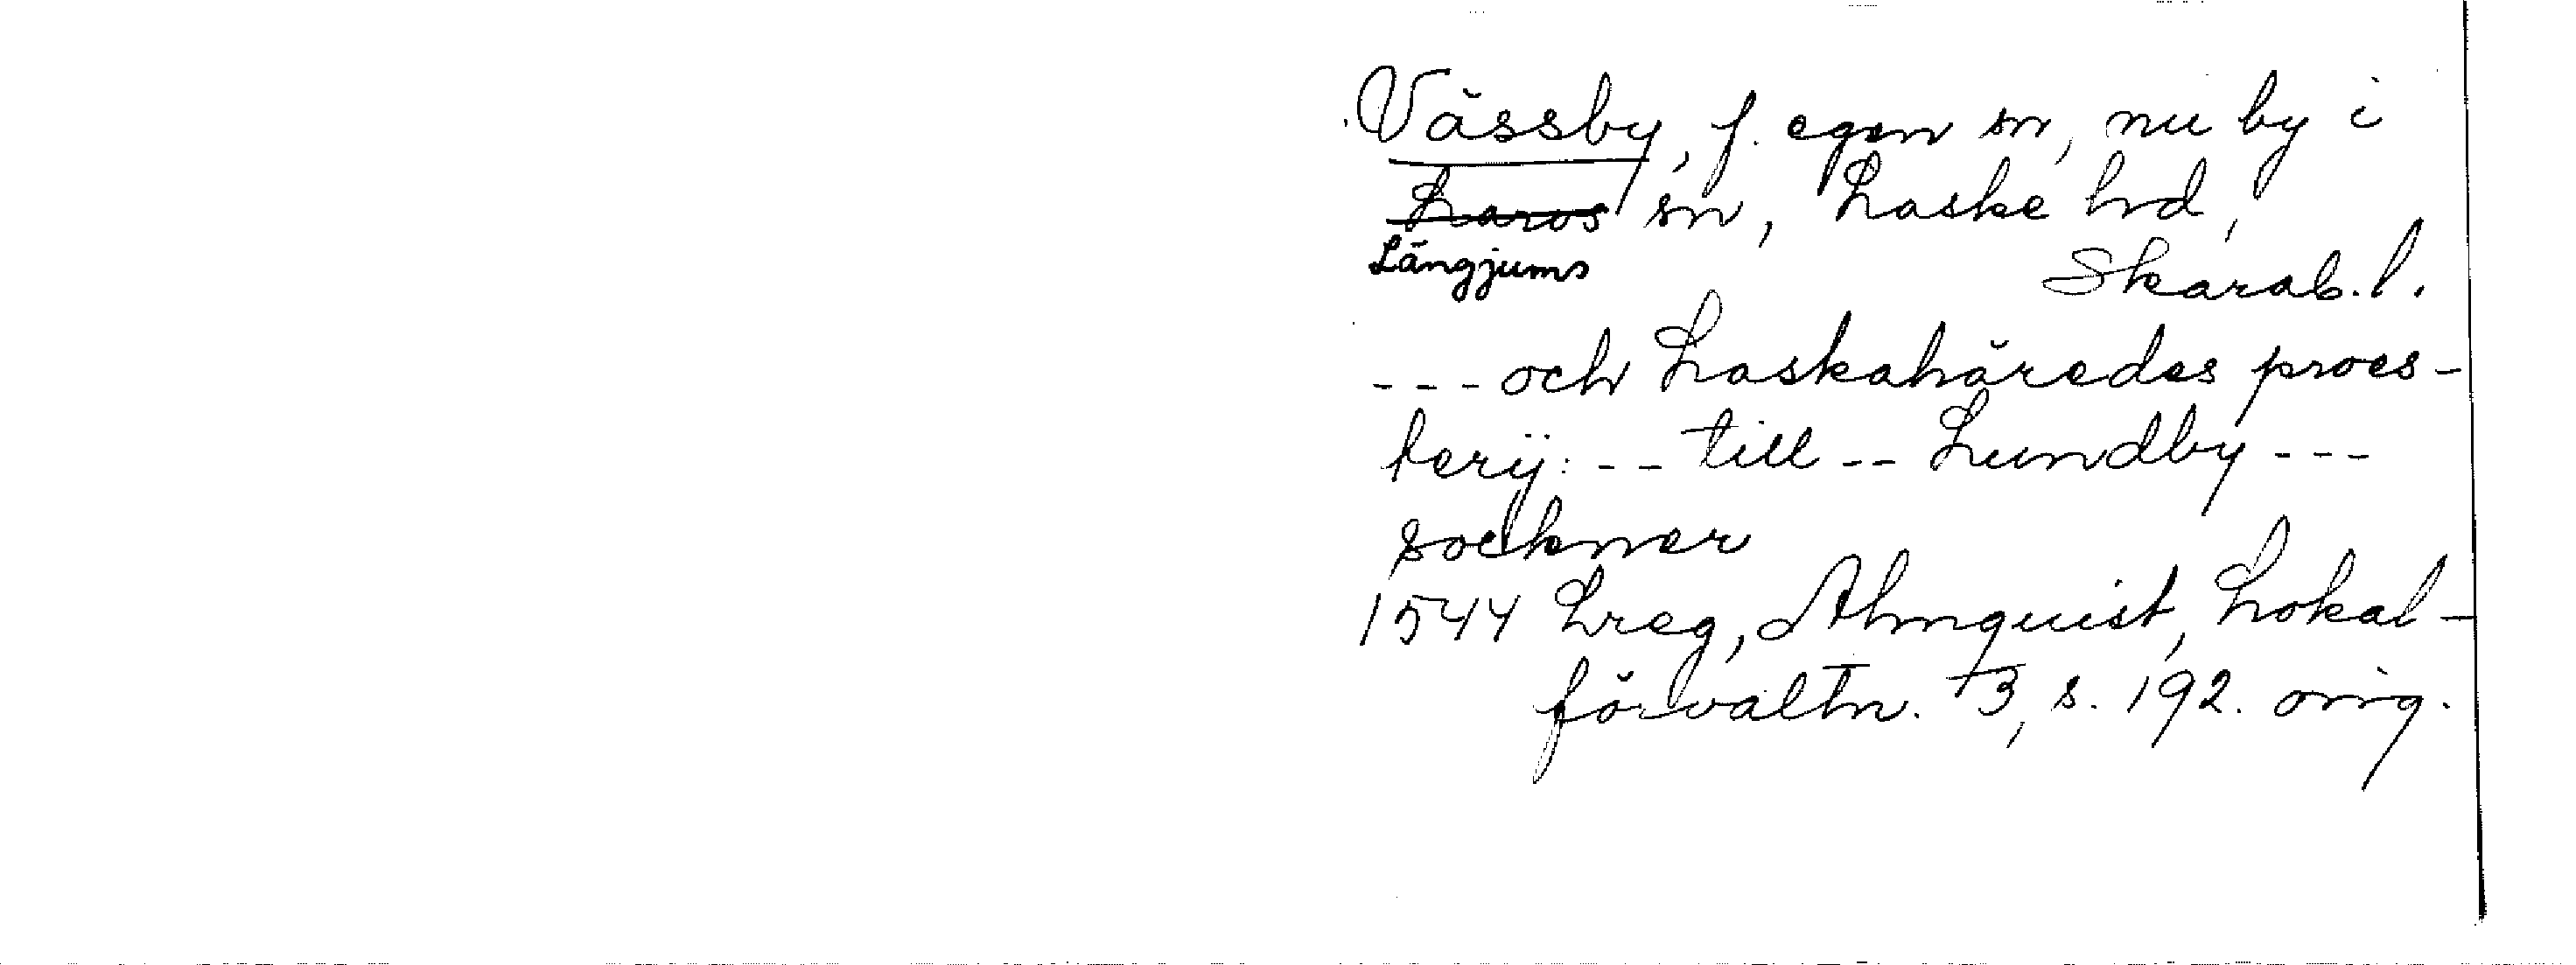 Vässby, f. egen sn, nu by i
Laros sn, Laske hd,
Längjums
Skarab. l.
--- och Laskahäredes proes-
terij: -- till -- Lundby ---
socknar
1544 Lreg, Almquist, Lokal-
förvaltn. 3, s. 192. orig.